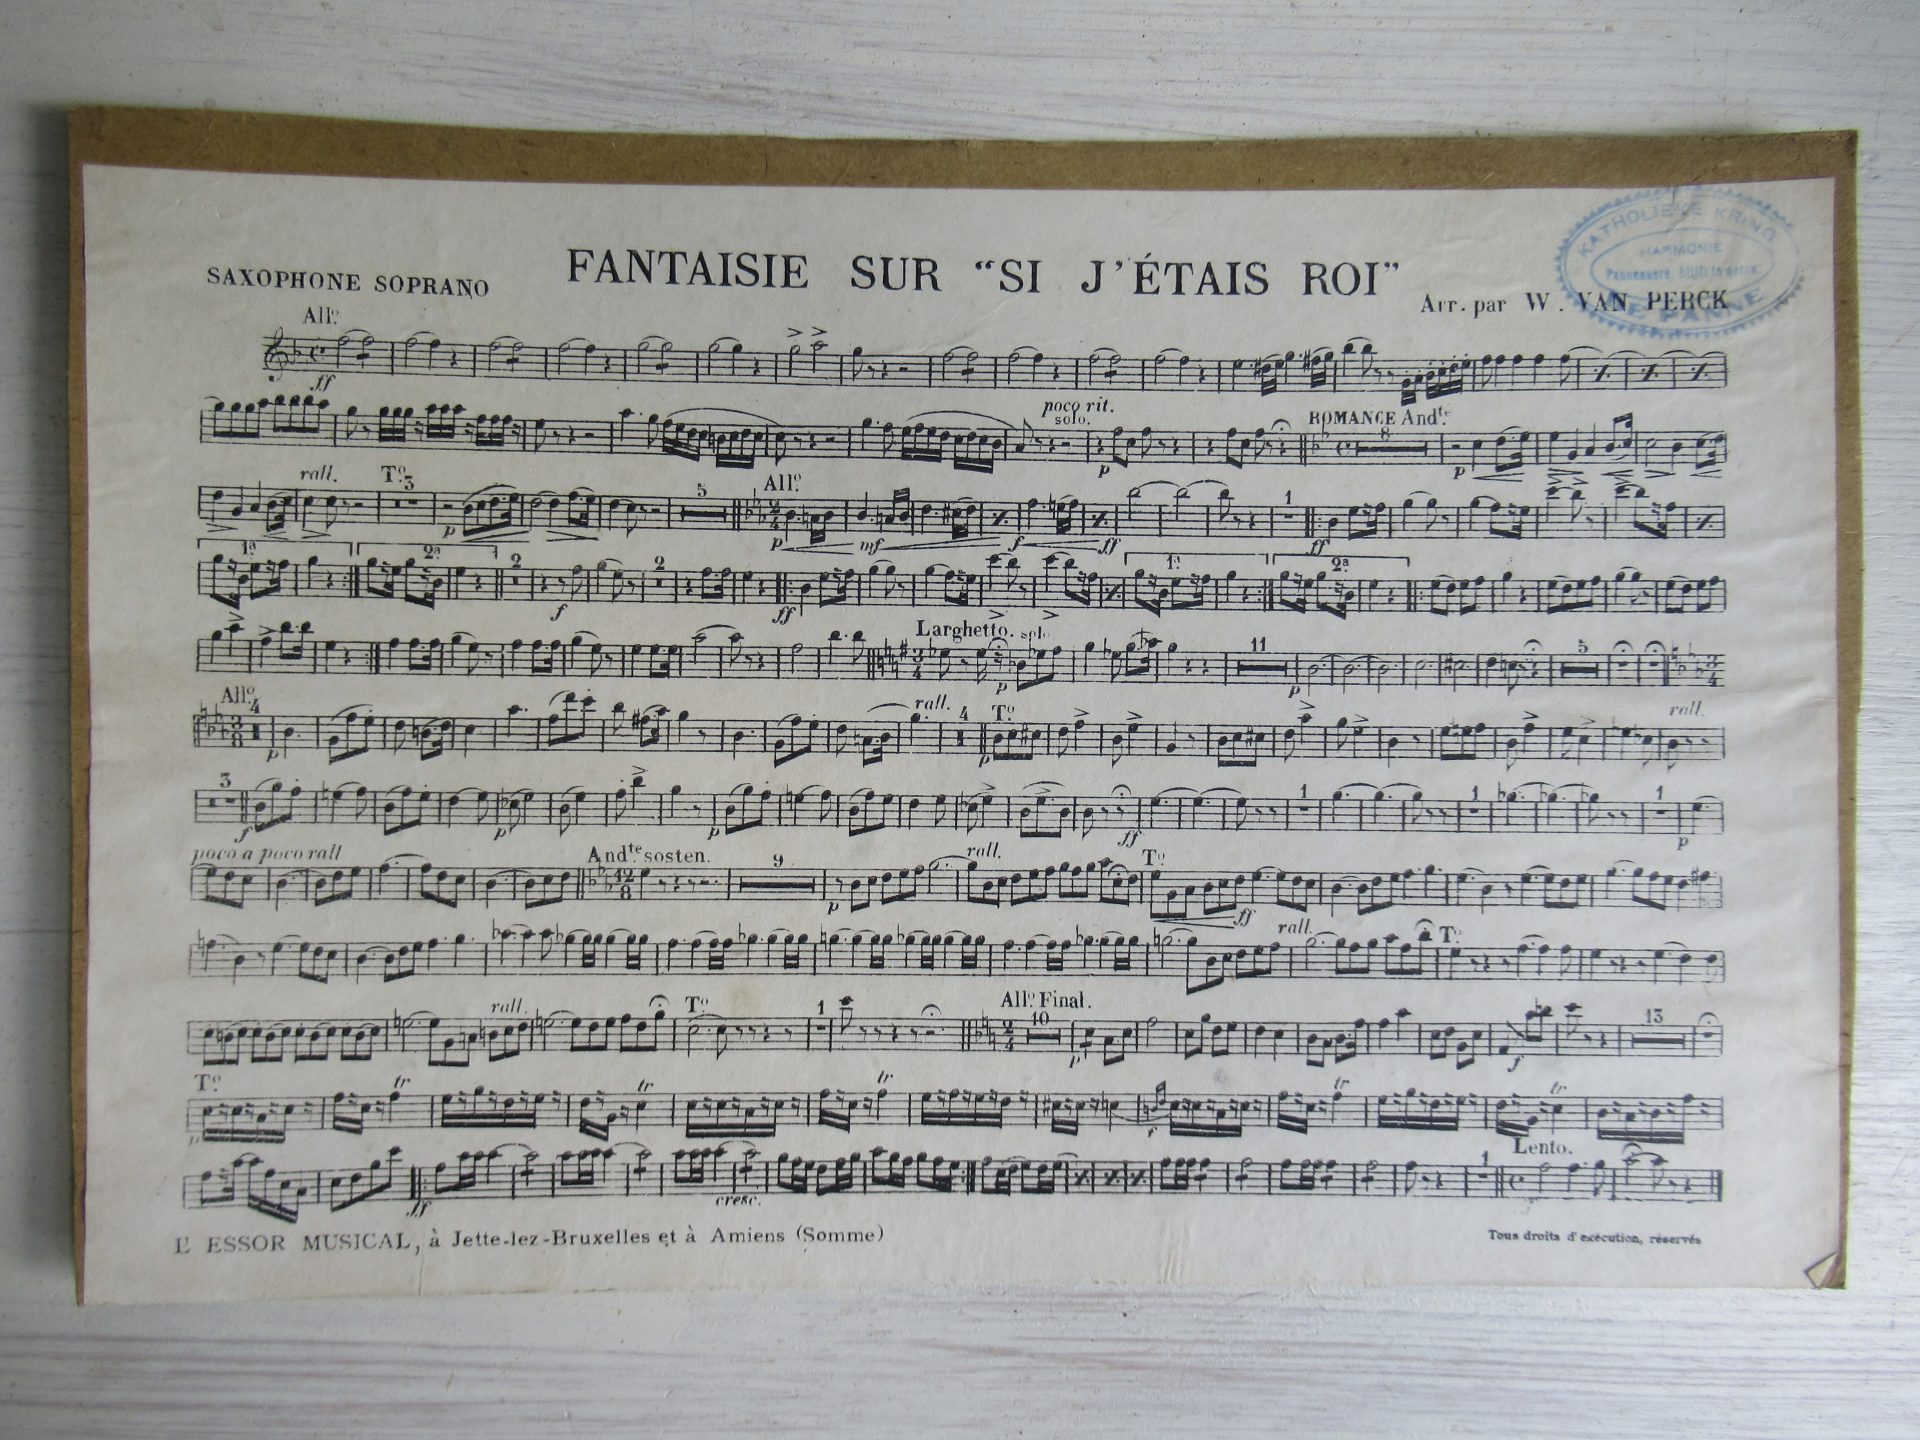 KATHOLIEKE KRING
HARMONIE
DE PANNE
SAXOPHONE SOPRANO
FANTAISIE SUR “SI J’ÉTAIS ROI”
Arr. par W. VAN PERCK
All°.
ff
poco rit.
solo.
ROMANCE And.te
8
p
p
rall.
T° 3
5
All°.
2 4
1
p
p
mf
f
ff
ff
1ª
2ª
2
2
1ª
2ª
f
ff
Larghetto. solo
3 4
11
5
3 4
p
p
All°.
4
3 8
rall.
4
T°
rall.
p
p
3
1
1
1
f
p
p
ff
p
poco a poco rall
And.te sosten.
12 8
9
rall.
T°
p
ff
rall.
T°
rall.
T°
1
All° Final.
2 4
10
13
p
f
T°
tr
tr
tr
tr
tr
p
Lento.
1
ff
cresc.
L' ESSOR MUSICAL, à Jette-lez-Bruxelles et à Amiens (Somme)
Tous droits d'exécution, réservés